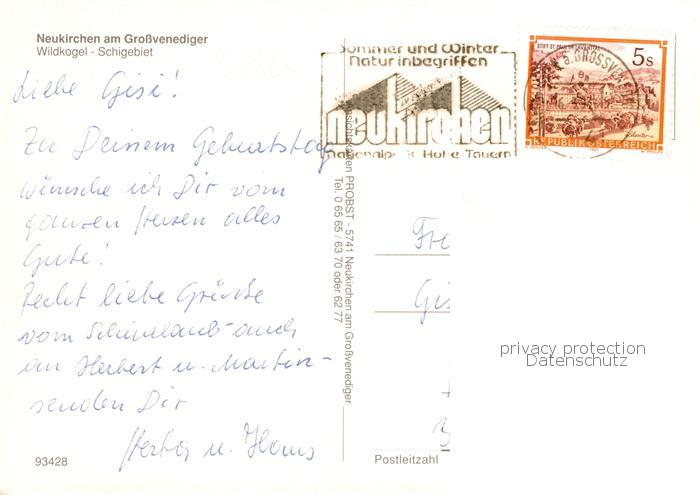 Neukirchen am Großvenediger
Wildkogel - Schigebiet
Liebe Gisi!
Zu Deinem Geburtstag
wünsche ich Dir vom
ganzen Herzen alles
Gute!
Recht liebe Grüsse
vom Schiurlaub - auch
an Herbert u. Martin -
senden Dir
Herta u. Hans
93428
Sommer und Winter
Natur inbegriffen
neukirchen
Nationalpark Hohe Tauern
STIFT ST. PAUL IM LAVANTTAL
5 S
REPUBLIK ÖSTERREICH
a. GROSSV
Ansichtskarten PROBST - 5741 Neukirchen am Großvenediger
Tel. 0 65 65 / 63 70 oder 62 77
Fr
Gis
Postleitzahl
privacy protection
Datenschutz